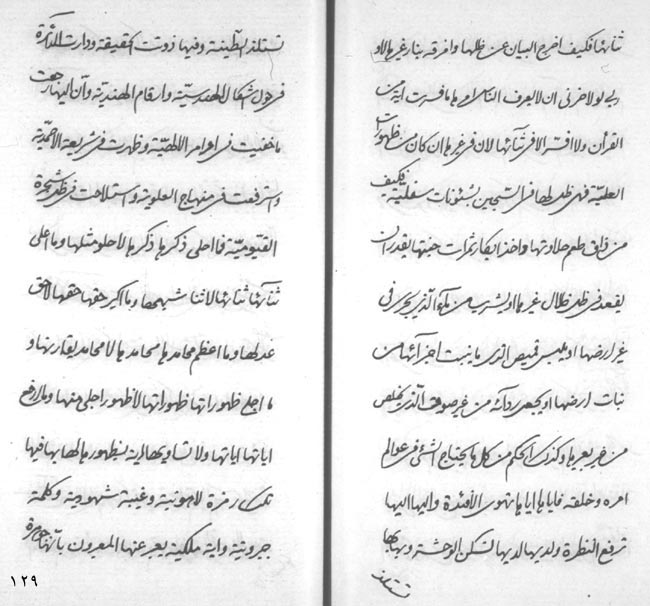 ثنائها فكيف اخرج البيان عن ظلها وافرقه بنار غيرها الا و
ربي لولا حزني ان لا يعرف الناس امرها ما فسرت اية من
القرآن ولا افسر الا في ثنائها لان في غيرها ان كان من ظهورات
العليّة فهي ظل لها في السّجين بشئونات سفلية فكيف
من ذاق طعم حلاوتها واخذ ابكار ثمرات جنتها يقدر ان
يقعد في ظل ظلال غيرها او يشرب من ماء الذي يجرى في
غير ارضها او يلبس قميص الذي ما ينبت اجزائها من
نبات ارضها او يجعل ردائه من غير صوف الذي يخلص
من غير بعيرها وكذلك الحكم من كل ما يحتاج الشئ في عوالم
امره وخلقه فاياها اياها تهوى الأفئدة واليها اليها
ترفع النظرة ولديها لديها تسكن الوحشة وبها بها
تستلذ
تستلذ الطّينة وفيها ذوّت الحقيقة ودارت الدائرة
في حول اشكال الهندسيّة وارقام الهندية وان اليها رجعت
ما خفيت في اوامر الالهيّة وظهرت في شريعة الاحمديّة
واشرقت في منهاج العلوية واستلاحت في ظل شجرة
القيّوميّة فما احلى ذكرها ذكرها لا حلو مثلها وما اعلى
ثنائها ثنائها لا ثنا شبهها وما اكبر حقها حقها لا حق
عدلها وما اعظم محامدها محامدها لا محامد يقاربها و
ما اجلى ظهوراتها ظهوراتها لا ظهور اجلى منها وما ارفع
اياتها اياتها ولا تساويها اية بظهورها لها بها فيها
تلك رمزة لاهوتية وغيبة شهودية وكلمة
جبروتية واية ملكية يعبر عنها المعبرون بانها جوهرة
١٢٩